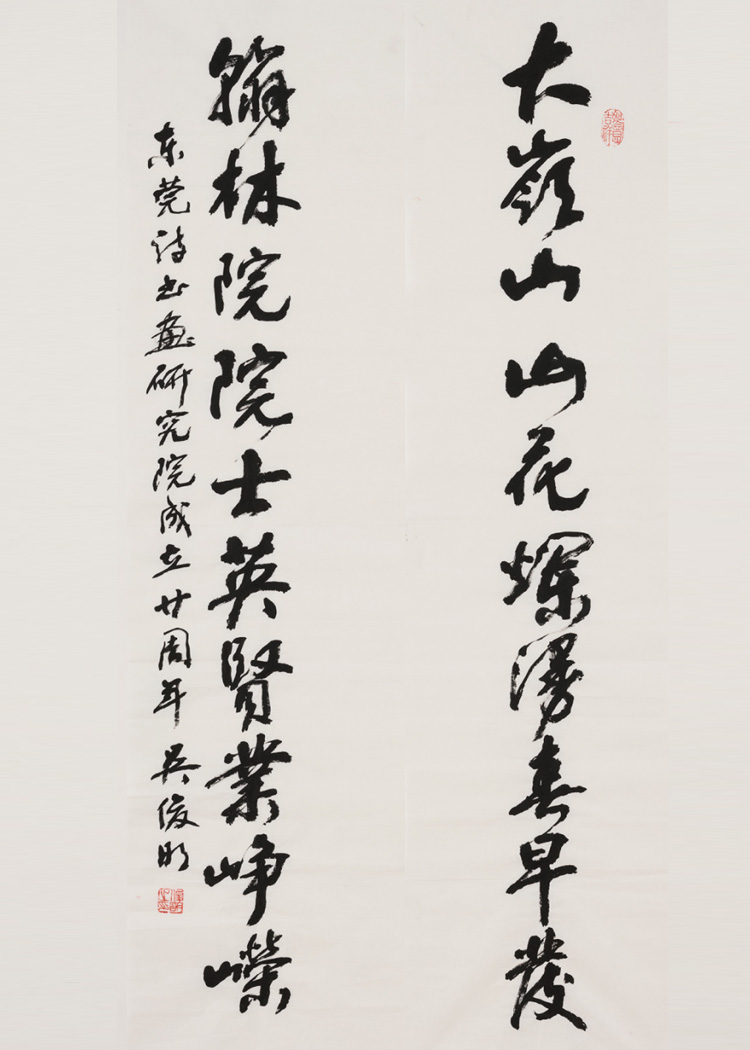 大嶺山山花爛漫春早發
翰林院院士英賢業峥嶸
东莞诗书畫研究院成立廿周年 吴俊明